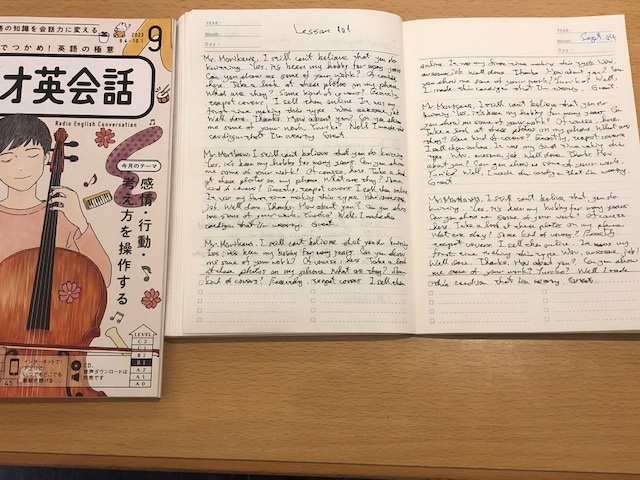 語の知識を会話力に変える
でつかめ! 英語の極意
9
2023
9.4-10.1
オ英会話
Radio English Conversation
今月のテーマ
感情・行動・
考え方を操作する
LEVEL
C2
C1
B2
B1
A2
A1
A0
インターネットで!
いつでもどこでも
番組を聴ける
CD、
音声ダウンロードは
別売です
YEAR
Month
Day
Lesson 101
Mr. Morikawa, I still can't believe that you do
knitting. Yes, it's been my hobby for many years.
Can you show me some of your work? Of course,
here. Take a look at these photos on my phone.
What are they? Some kind of covers? Exactly,
teapot covers. I sell them online. It was my
first time making this type. Wow, awesome job.
Well done. Thanks. How about you? Can you show
me some of your work, Yuriko? Well, I made this
cardigan that I'm wearing. Great.
Mr. Morikawa, I still can't believe that you do
knitting. Yes, it's been my hobby for many years. Can you show
me some of your work? Of course, here. Take a look
at these photos on my phone. What are they? Some
kind of covers? Exactly, teapot covers. I sell them
online. It was my first time making this type. Wow, awesome
job. Well done. Thanks. How about you? Can you show
me some of your work, Yuriko? Well, I made this
cardigan that I'm wearing. Great.
Mr. Morikawa, I still can't believe that you do knitting.
Yes, it's been my hobby for many years. Can you show
me some of your work? Of course, here. Take a look
at these photos on my phone. What are they? Some
kind of covers? Exactly, teapot covers. I sell them
YEAR
Month
Day
online. It was my first time making this type. Wow,
awesome job. Well done. Thanks. How about you? Can
you show me some of your work, Yuriko? Well,
I made this cardigan that I'm wearing. Great.
Mr. Morikawa, I still can't believe that you do
knitting. Yes, it's been my hobby for many years. Can
you show me some of your work? Of course, here.
Take a look at these photos on my phone. What are
they? Some kind of covers? Exactly, teapot covers.
I sell them online. It was my first time making this
type. Wow, awesome job. Well done. Thanks. How
about you? Can you show me some of your work,
Yuriko? Well, I made this cardigan that I'm wearing.
Great.
Mr. Morikawa, I still can't believe that you do
knitting. Yes, it's been my hobby for many years.
Can you show me some of your work? Of course,
here. Take a look at these photos on my phone.
What are they? Some kind of covers? Exactly,
teapot covers. I sell them online. It was my
first time making this type. Wow, awesome job.
Well done. Thanks. How about you? Can you show
me some of your work? Yuriko? Well I made
this cardigan that I'm wearing. Great.